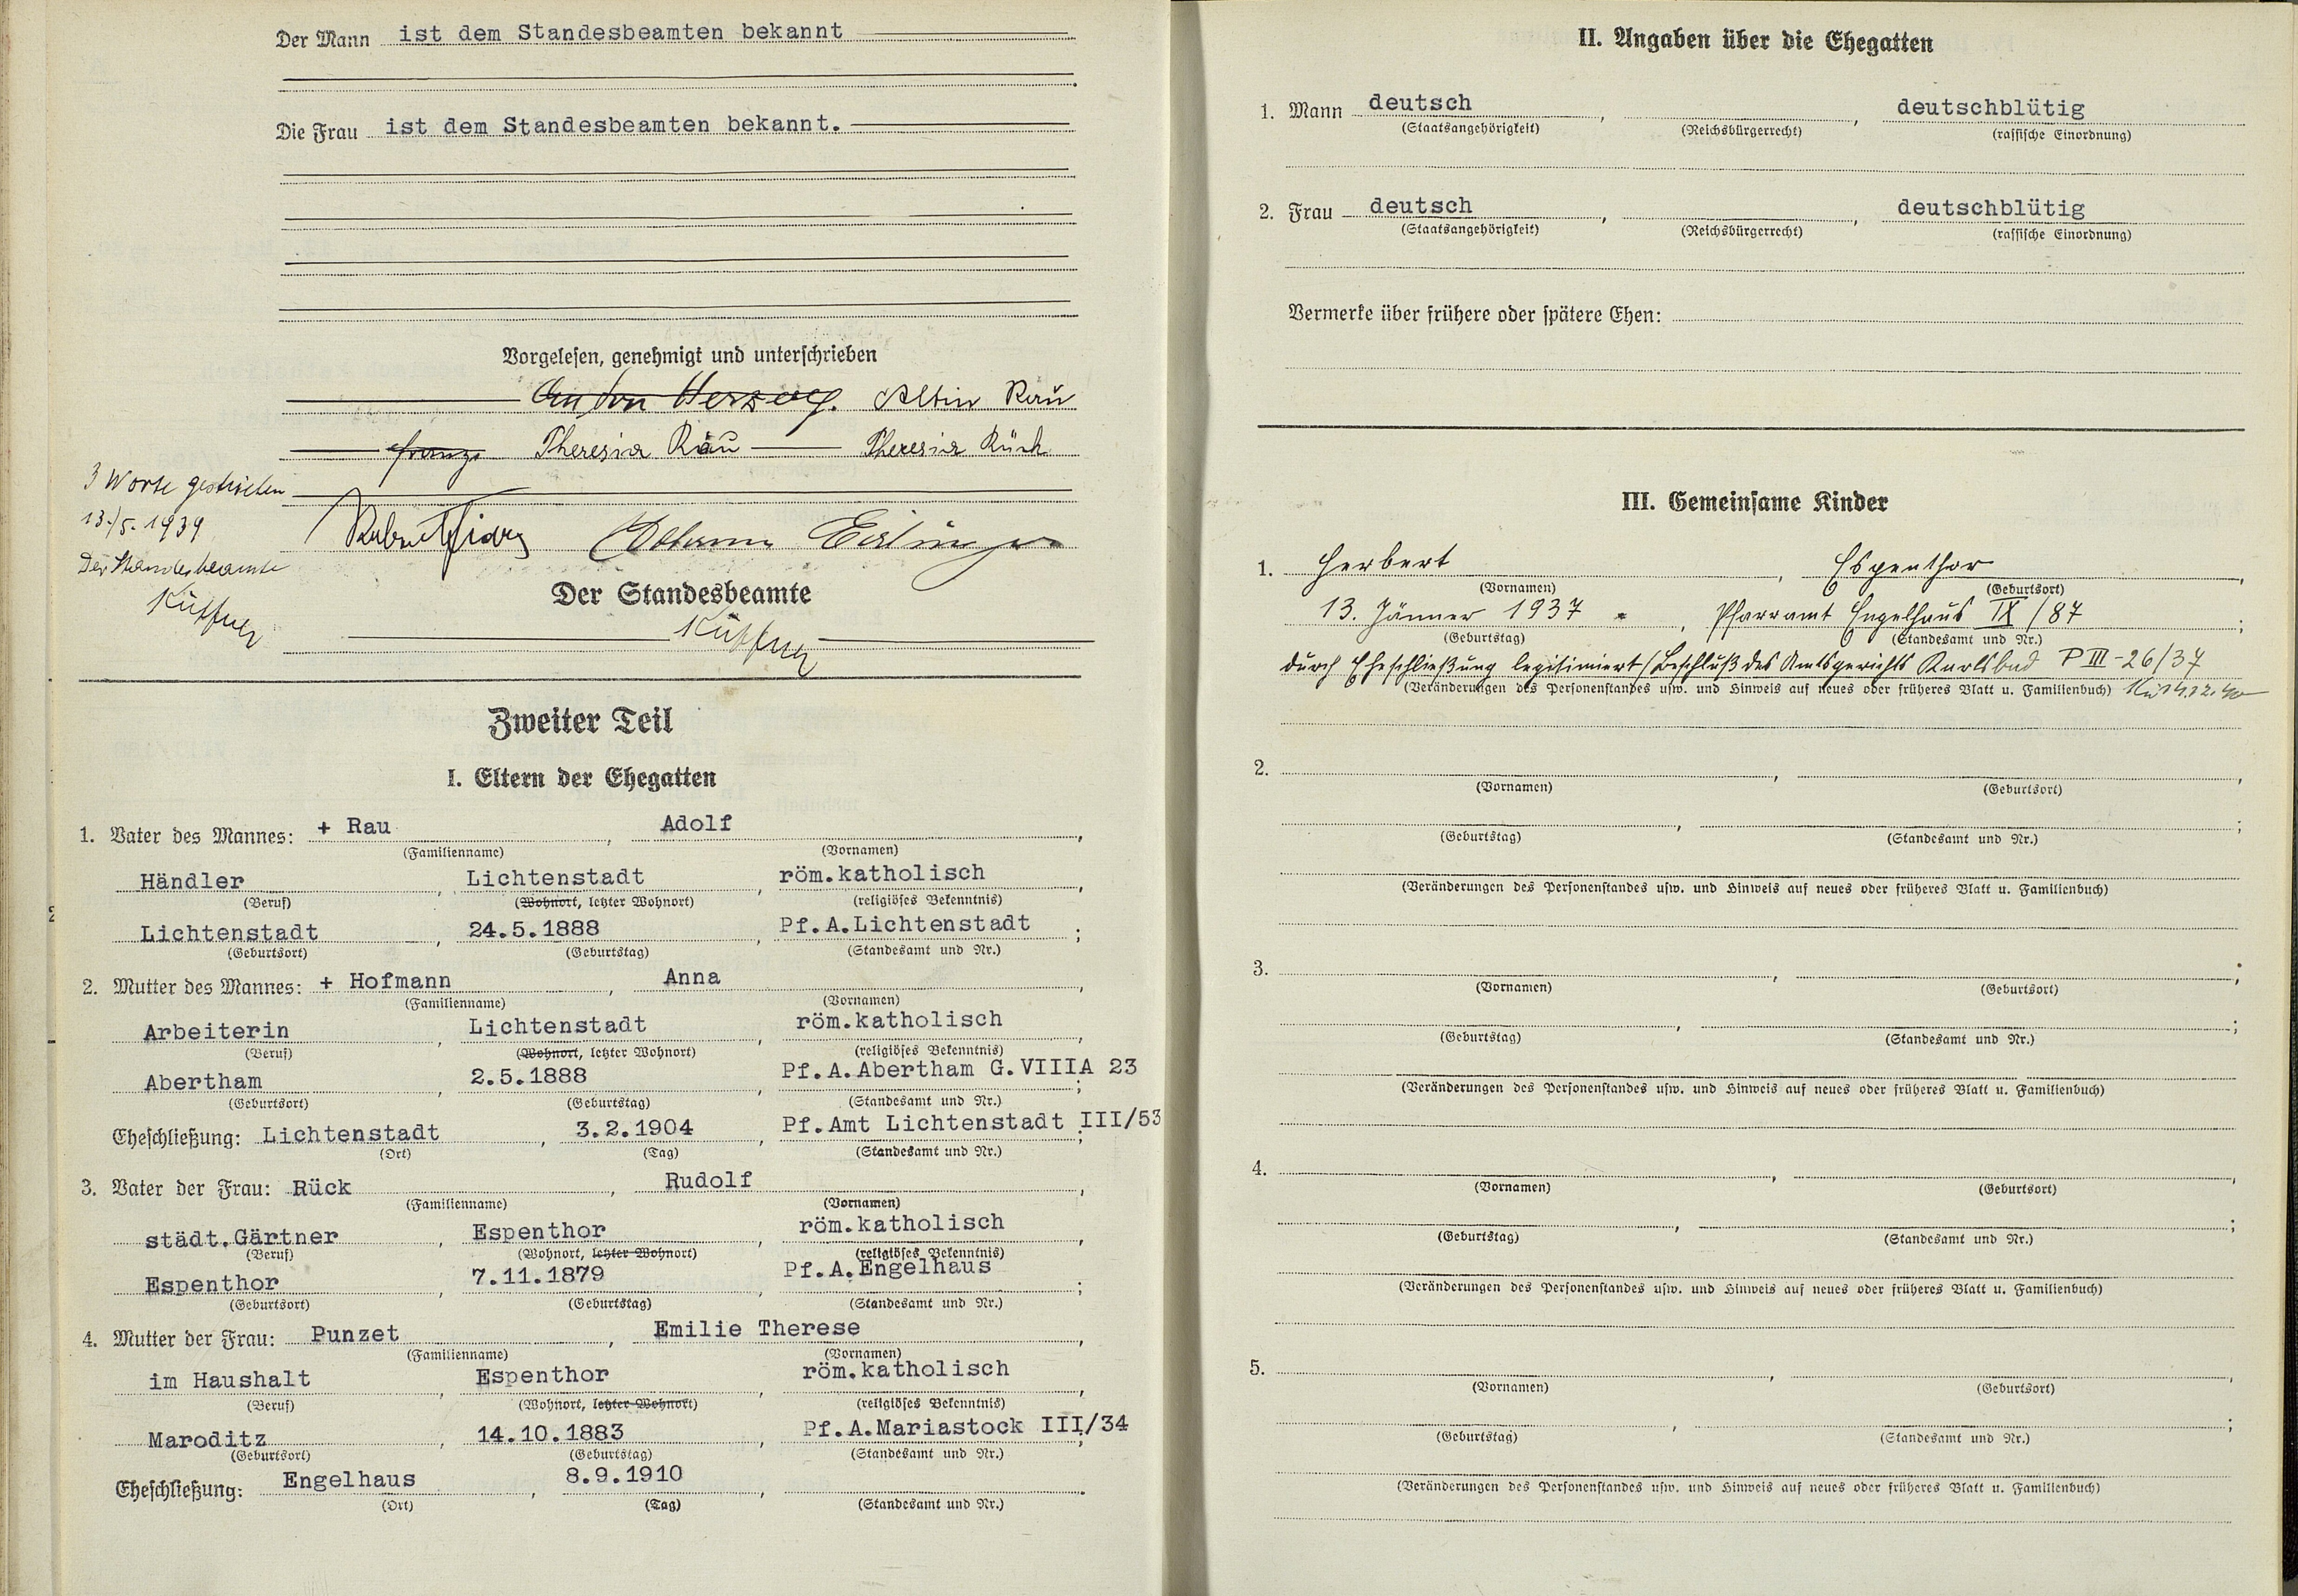 Der Mann ist dem Standesbeamten bekannt
Die Frau ist dem Standesbeamten bekannt.
Vorgelesen, genehmigt und unterschrieben
Anton Herzog. Albin Rau
Franz Theresia Rau Theresia Rück
3 Worte gestrichen
13./5. 1939
Der Standesbeamte
Küffner
Der Standesbeamte
Küffner
Zweiter Teil
I. Eltern der Ehegatten
1. Vater des Mannes: + Rau , Adolf ,
(Familienname) (Vornamen)
Händler , Lichtenstadt , röm.katholisch ,
(Beruf) (Wohnort, letzter Wohnort) (religiöses Bekenntnis)
Lichtenstadt , 24.5.1888 , Pf.A.Lichtenstadt ;
(Geburtsort) (Geburtstag) (Standesamt und Nr.)
2. Mutter des Mannes: + Hofmann , Anna ,
(Familienname) (Vornamen)
Arbeiterin , Lichtenstadt , röm.katholisch ,
(Beruf) (Wohnort, letzter Wohnort) (religiöses Bekenntnis)
Abertham , 2.5.1888 , Pf.A.Abertham G.VIIIA 23 ;
(Geburtsort) (Geburtstag) (Standesamt und Nr.)
Eheschließung: Lichtenstadt , 3.2.1904 , Pf.Amt Lichtenstadt III/53 ;
(Ort) (Tag) (Standesamt und Nr.)
3. Vater der Frau: Rück , Rudolf ,
(Familienname) (Vornamen)
städt.Gärtner , Espenthor , röm.katholisch ,
(Beruf) (Wohnort, letzter Wohnort) (religiöses Bekenntnis)
Espenthor , 7.11.1879 , Pf.A.Engelhaus ;
(Geburtsort) (Geburtstag) (Standesamt und Nr.)
4. Mutter der Frau: Punzet , Emilie Therese ,
(Familienname) (Vornamen)
im Haushalt , Espenthor , röm.katholisch ,
(Beruf) (Wohnort, letzter Wohnort) (religiöses Bekenntnis)
Maroditz , 14.10.1883 , Pf.A.Mariastock III/34 ;
(Geburtsort) (Geburtstag) (Standesamt und Nr.)
Eheschließung: Engelhaus , 8.9.1910 , .
(Ort) (Tag) (Standesamt und Nr.)
II. Angaben über die Ehegatten
1. Mann deutsch , , deutschblütig
(Staatsangehörigkeit) (Reichsbürgerrecht) (rassische Einordnung)
2. Frau deutsch , , deutschblütig
(Staatsangehörigkeit) (Reichsbürgerrecht) (rassische Einordnung)
Vermerke über frühere oder spätere Ehen:
III. Gemeinsame Kinder
1. Herbert , Espenthor ,
(Vornamen) (Geburtsort)
13. Jänner 1937 , Pfarramt Engelhaus IX/87 ;
(Geburtstag) (Standesamt und Nr.)
durch Eheschließung legitimiert/Beschluß des Amtsgerichts Karlsbad P III-26/37
(Veränderungen des Personenstandes usw. und Hinweis auf neues oder früheres Blatt u. Familienbuch) Kü 14.12.40
2. , ,
(Vornamen) (Geburtsort)
, ;
(Geburtstag) (Standesamt und Nr.)
(Veränderungen des Personenstandes usw. und Hinweis auf neues oder früheres Blatt u. Familienbuch)
3. , ;
(Vornamen) (Geburtsort)
, ;
(Geburtstag) (Standesamt und Nr.)
(Veränderungen des Personenstandes usw. und Hinweis auf neues oder früheres Blatt u. Familienbuch)
4. , ,
(Vornamen) (Geburtsort)
, ;
(Geburtstag) (Standesamt und Nr.)
(Veränderungen des Personenstandes usw. und Hinweis auf neues oder früheres Blatt u. Familienbuch)
5. , ,
(Vornamen) (Geburtsort)
, ;
(Geburtstag) (Standesamt und Nr.)
(Veränderungen des Personenstandes usw. und Hinweis auf neues oder früheres Blatt u. Familienbuch)